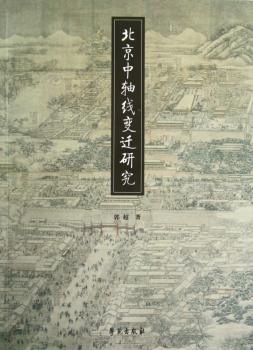 北京中轴线变迁研究
郭超 著
学苑出版社